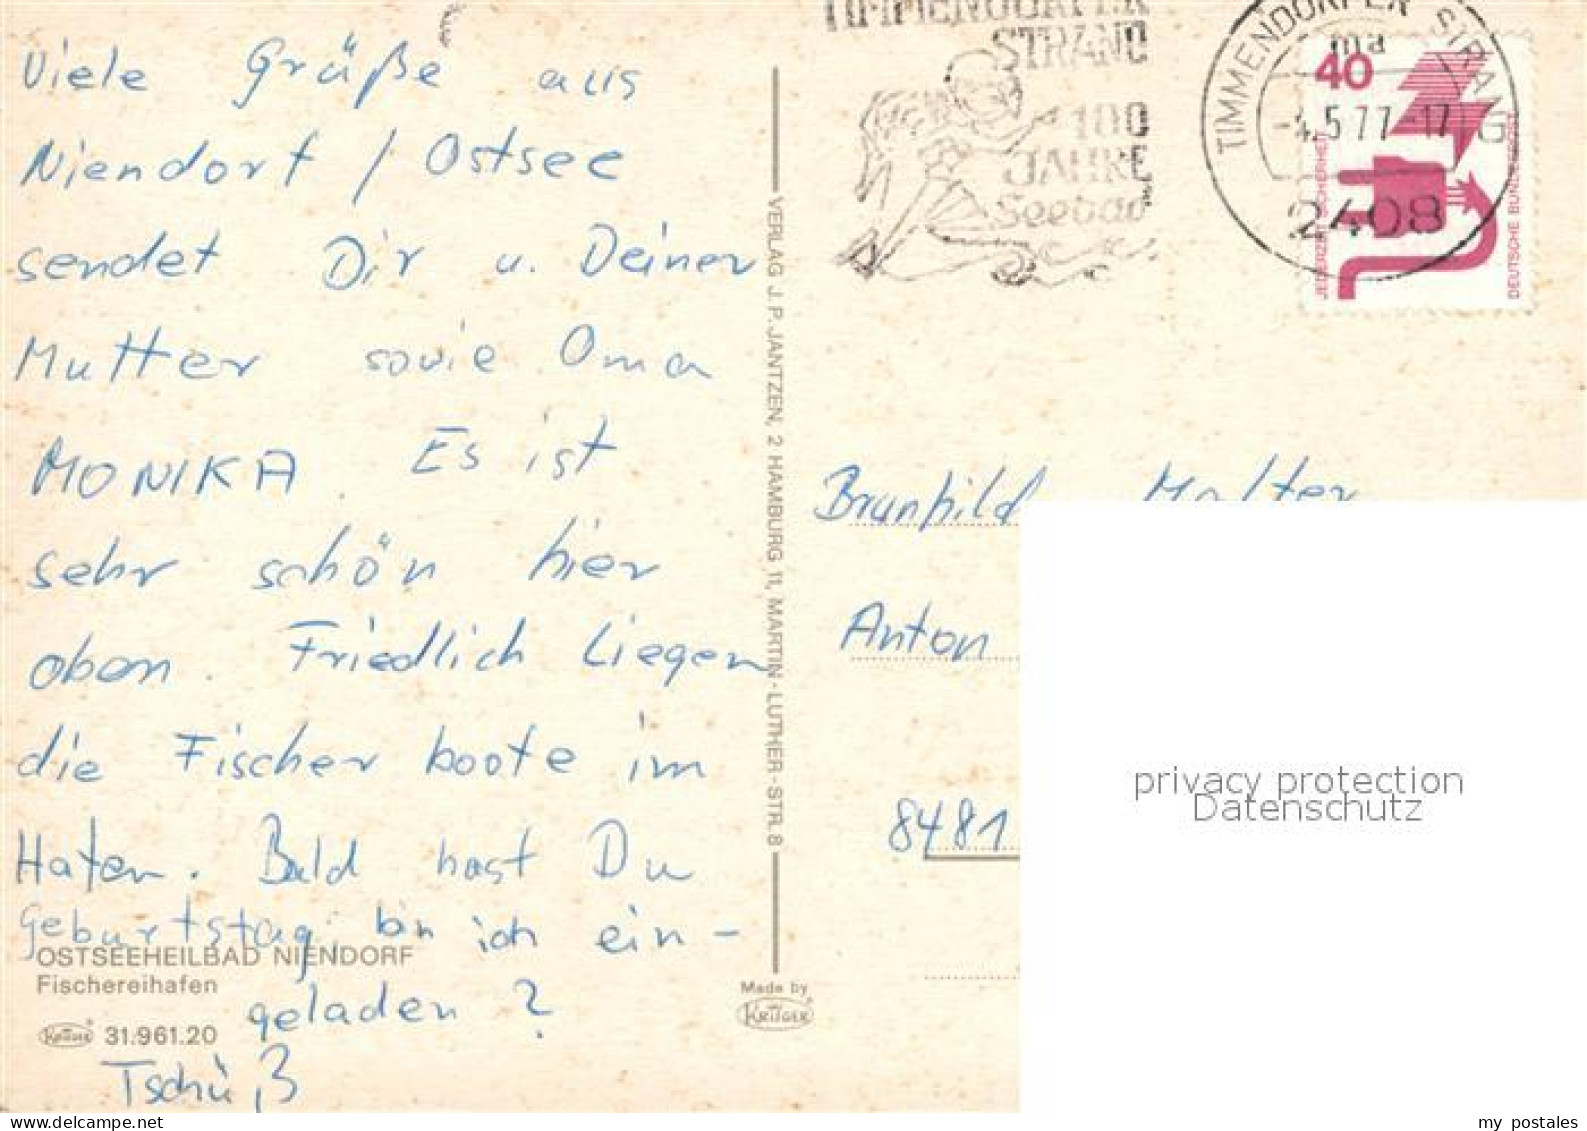 Viele Grüße aus
Niendorf / Ostsee
sendet Dir u. Deiner
Mutter sowie Oma
MONIKA. Es ist
sehr schön hier
oben. Friedlich liegen
die Fischerboote im
Hafen. Bald hast Du
Geburtstag, bin ich ein-
geladen?
Tschü, B
OSTSEEHEILBAD NIENDORF
Fischereihafen
Krüger 31.961.20
VERLAG J. P. JANTZEN, 2 HAMBURG 11, MARTIN-LUTHER-STR. 8
Made by
KRÜGER
TIMMENDORFER
STRAND
100
JAHRE
Seebad
TIMMENDORFER STRAND
ma
-4.5.77-17
2408
40
JEDERZEIT SICHERHEIT
DEUTSCHE BUNDESPOST
Brunhild Molter
Anton
8481
privacy protection
Datenschutz
my postales